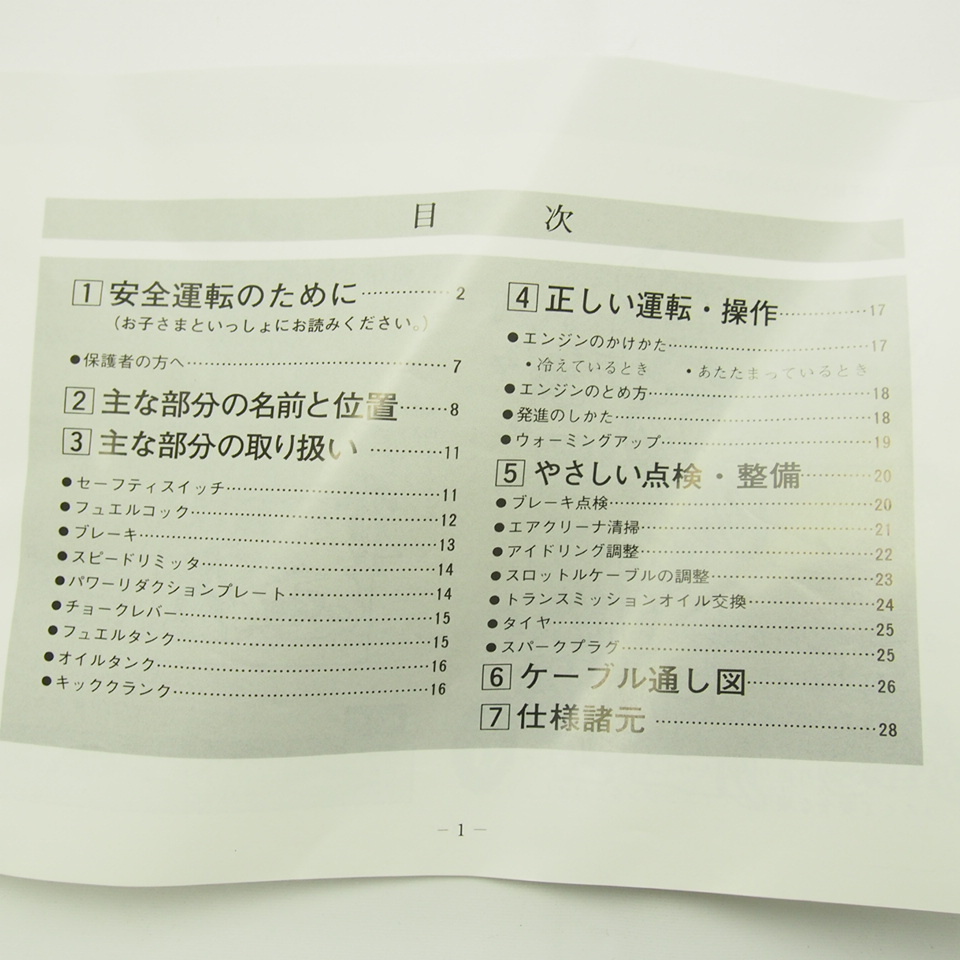 目 次
1 安全運転のために……………2
(お子さまといっしょにお読みください。)
●保護者の方へ……………7
2 主な部分の名前と位置……8
3 主な部分の取り扱い…………11
●セーフティスイッチ……………11
●フュエルコック……………12
●ブレーキ……………13
●スピードリミッタ……………14
●パワーリダクションプレート……………14
●チョークレバー……………15
●フュエルタンク……………15
●オイルタンク……………16
●キッククランク……………16
4 正しい運転・操作……………17
●エンジンのかけかた……………17
・冷えているとき ・あたたまっているとき
●エンジンのとめ方……………18
●発進のしかた……………18
●ウォーミングアップ……………19
5 やさしい点検・整備…………20
●ブレーキ点検……………20
●エアクリーナ清掃……………21
●アイドリング調整……………22
●スロットルケーブルの調整……………23
●トランスミッションオイル交換……………24
●タイヤ……………25
●スパークプラグ……………25
6 ケーブル通し図……………26
7 仕様諸元……………28
― 1 ―